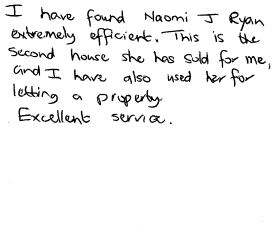 I have found Naomi J Ryan
extremely efficient. This is the
second house she has sold for me,
and I have also used her for
letting a property.
Excellent service.